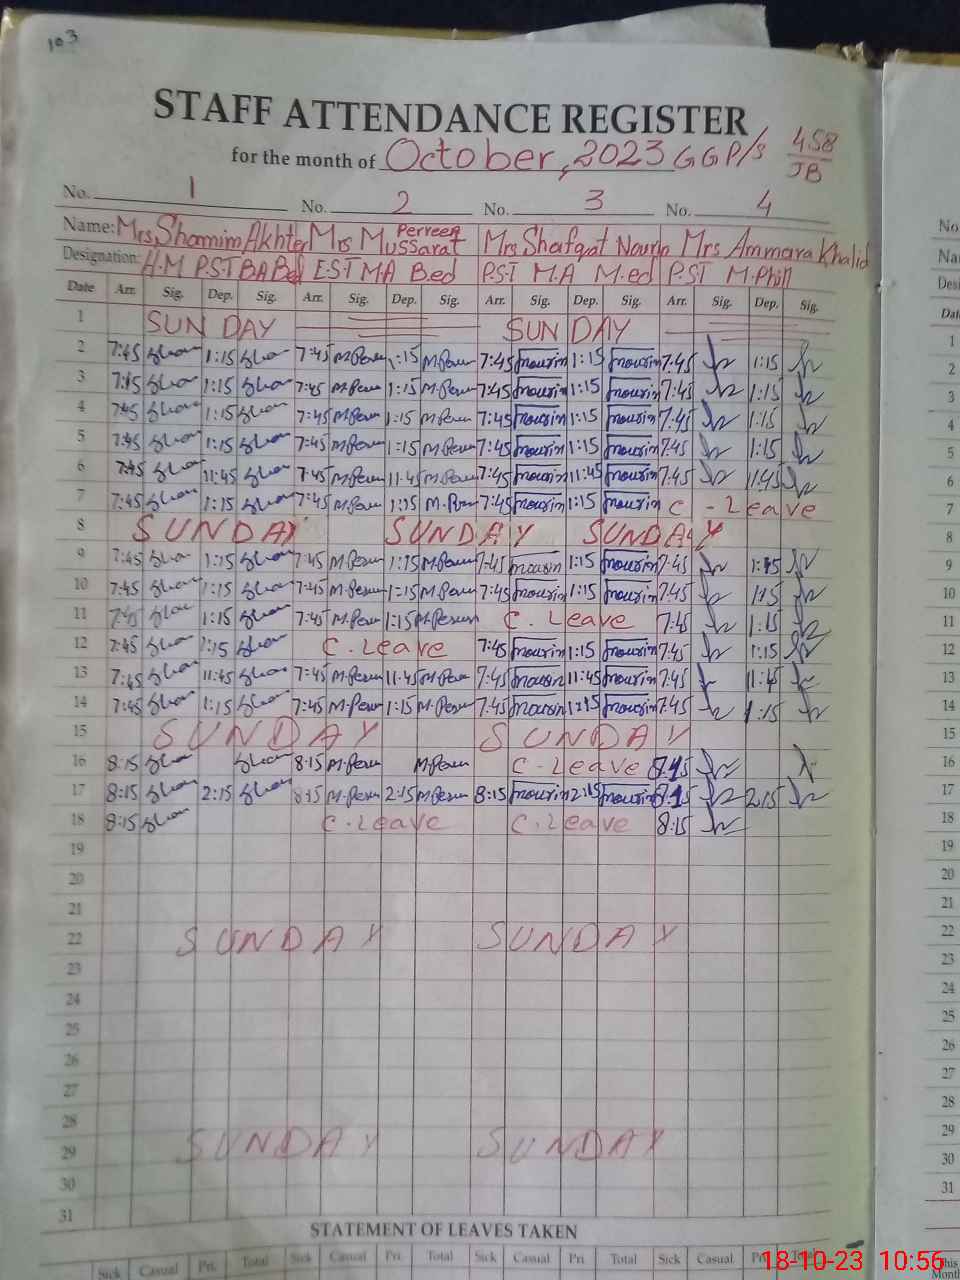 103
STAFF ATTENDANCE REGISTER
for the month of October, 2023 GGP/S 458/JB
No. 1 No. 2 No. 3 No. 4
Name: Mrs Shamim Akhter Mrs Mussarat Perveen Mrs Shafqat Nourin Mrs Ammara Khalid
Designation: H.M P.S.T BA Bed E.S.T M.A Bed P.S.T M.A M.ed P.S.T M.Phill
Date Arr. Sig. Dep. Sig. Arr. Sig. Dep. Sig. Arr. Sig. Dep. Sig. Arr. Sig. Dep. Sig.
1 SUNDAY SUNDAY
2 7:45 1:15 7:45 1:15 7:45 nourin 1:15 nourin 7:45 1:15
3 7:45 1:15 7:45 1:15 7:45 nourin 1:15 nourin 7:45 1:15
4 7:45 1:15 7:45 1:15 7:45 nourin 1:15 nourin 7:45 1:15
5 7:45 1:15 7:45 1:15 7:45 nourin 1:15 nourin 7:45 1:15
6 7:45 11:45 7:45 11:45 7:45 nourin 11:45 nourin 7:45 11:45
7 7:45 1:15 7:45 1:15 7:45 nourin 1:15 nourin C - Leave
8 SUNDAY SUNDAY SUNDAY
9 7:45 1:15 7:45 1:15 7:45 nourin 1:15 nourin 7:45 1:15
10 7:45 1:15 7:45 1:15 7:45 nourin 1:15 nourin 7:45 1:15
11 7:45 1:15 7:45 1:15 C. Leave 7:45 1:15
12 7:45 1:15 C. Leave 7:45 nourin 1:15 nourin 7:45 1:15
13 7:45 11:45 7:45 11:45 7:45 nourin 11:45 nourin 7:45 11:45
14 7:45 1:15 7:45 1:15 7:45 nourin 1:15 nourin 7:45 1:15
15 SUNDAY SUNDAY
16 8:15 8:15 C. Leave 8:15
17 8:15 2:15 8:15 2:15 8:15 nourin 2:15 nourin 8:15 2:15
18 8:15 C. Leave C. Leave 8:15
19
20
21
22 SUNDAY SUNDAY
23
24
25
26
27
28
29 SUNDAY SUNDAY
30
31
STATEMENT OF LEAVES TAKEN
Sick Casual Pri. Total Sick Casual Pri. Total Sick Casual Pri. Total Sick Casual Total
18-10-23 10:56
No
Dat
1
2
3
4
5
6
7
8
9
10
11
12
13
14
15
16
17
18
19
20
21
22
23
24
25
26
27
28
29
30
31